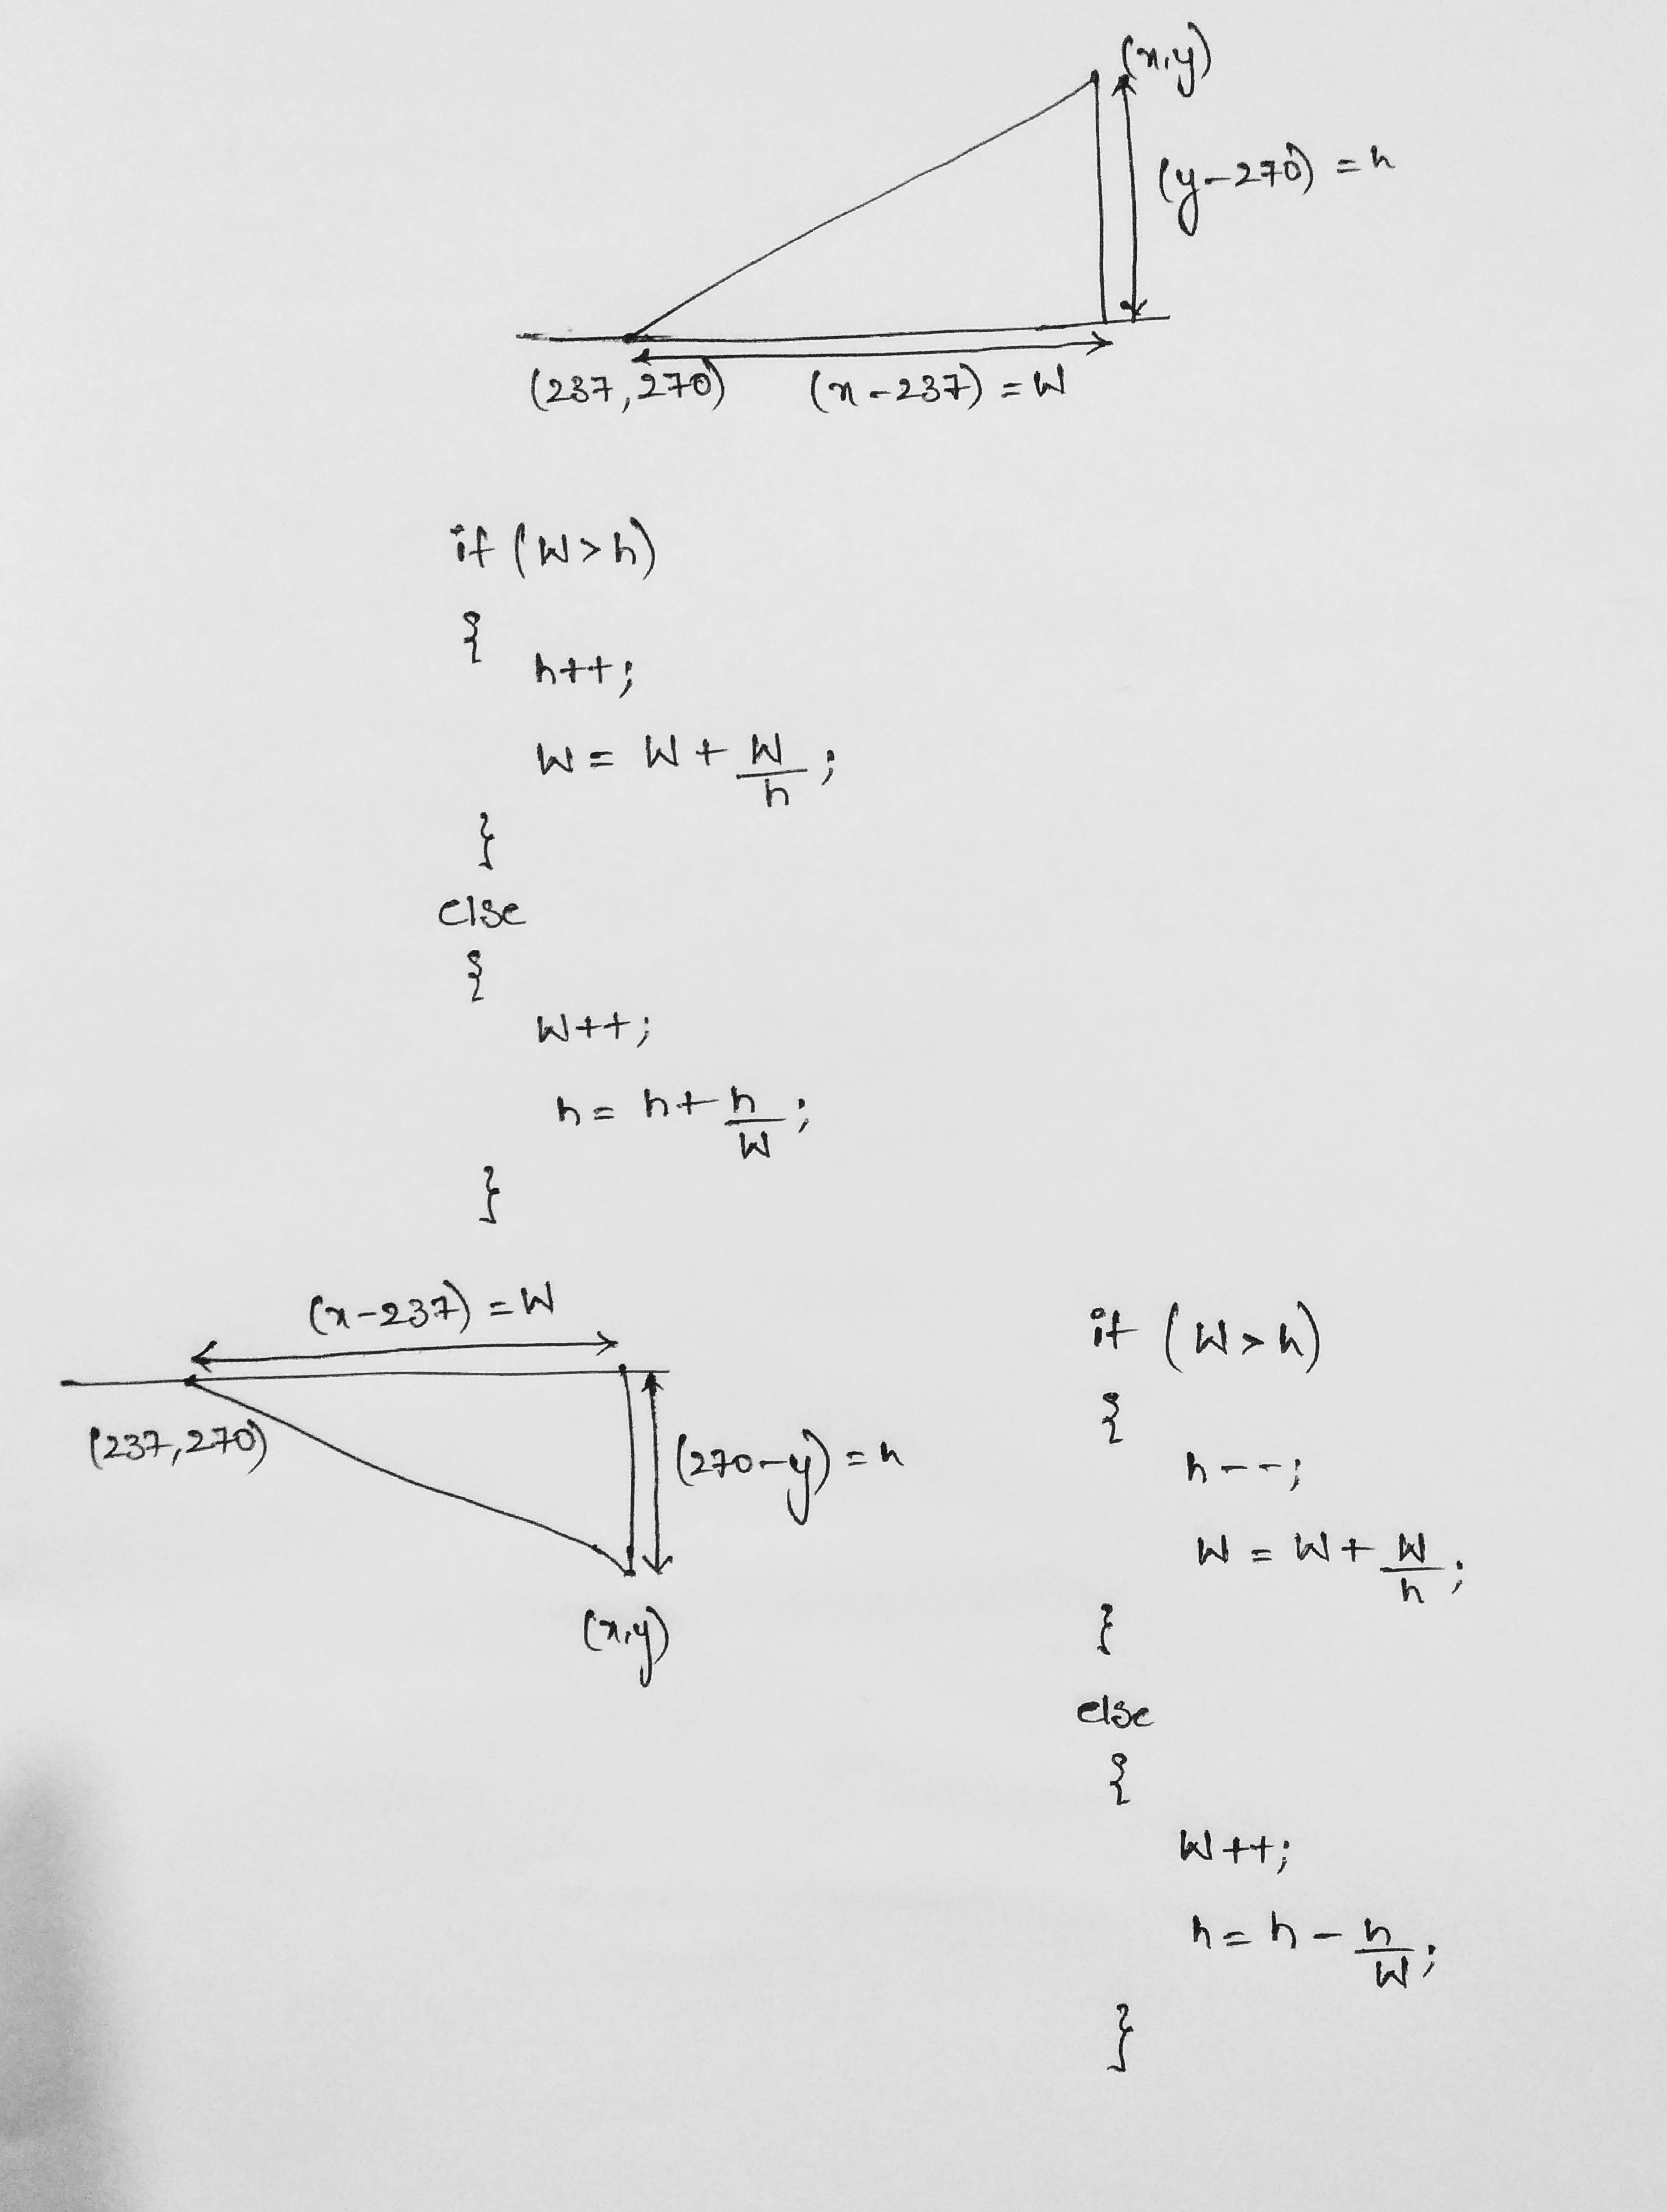 (x,y)
(y-270) = h
(237,270) (x-237) = W
if (W>h)
{
h++;
W = W + W/h ;
}
else
{
W++;
h = h + h/W ;
}
(x-237) = W
(237,270)
(270-y) = h
(x,y)
if (W>h)
{
h--;
W = W + W/h ;
}
else
{
W++;
h = h - h/W ;
}